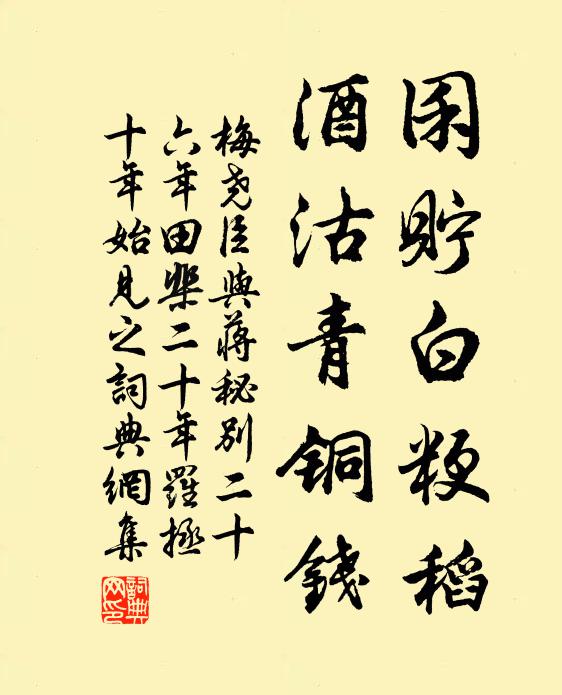 囷貯白粳稻
酒沽青銅錢
梅堯臣與蔣秘別二十
六年田棐二十年羅拯
十年始見之詞典網集
詞典網印